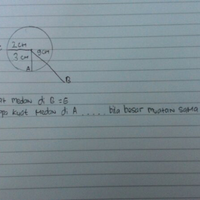 2 cm
9cm
3 cm
A
B
medan di B = E
kuat medan di A ...... bila besar muatan sama